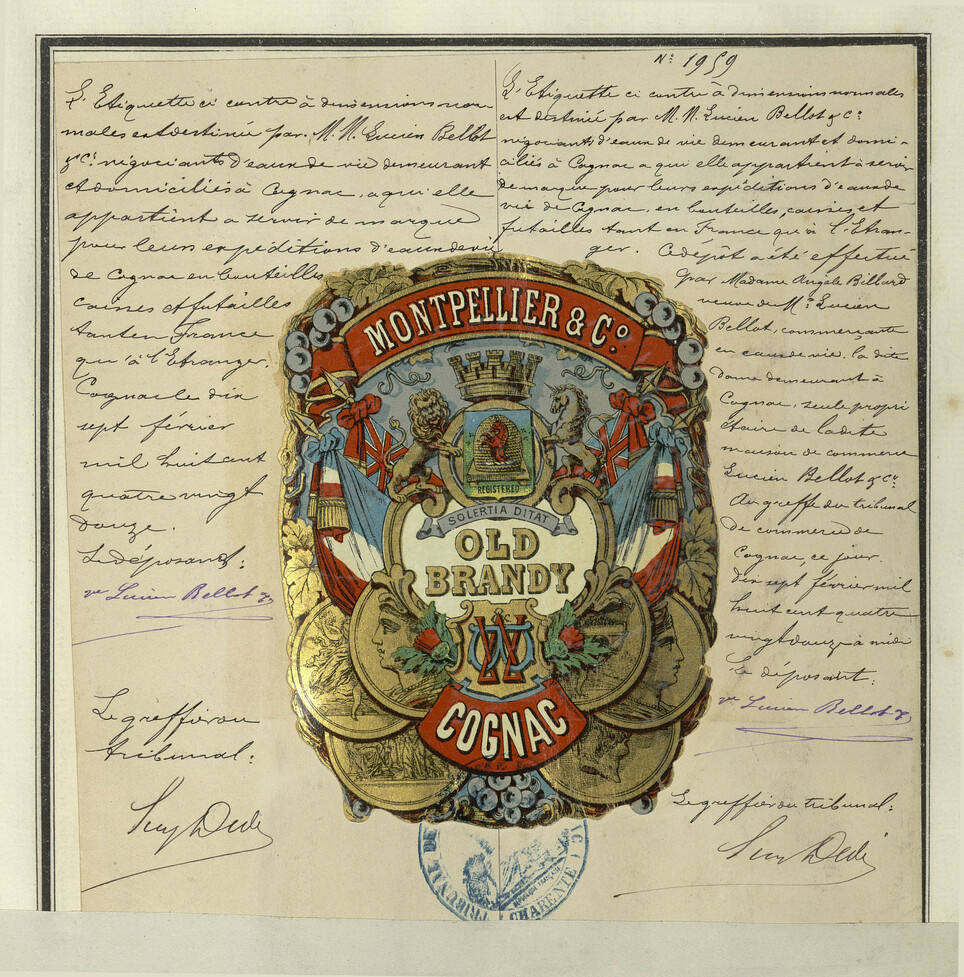 Nº 1959
L'Etiquette ci contre à dimensions nor
males est destinée par M.M. Lucien Bellot
& Cie négociants d'eaux de vie demeurant
et domiciliés à Cognac, a qui elle
appartient a servir de marque
pour leurs expéditions d'eaux de vie
de Cognac en bouteilles
caisses et futailles
tant en France
qu'à l'Etranger
Cognac le dix
sept février
mil huit cent
quatre vingt
douze.
Le déposant:
ve Lucien Bellot
Le greffier du
tribunal:
L'Etiquette ci contre à dimensions normales
est destinée par M.M. Lucien Bellot & Cie
négociants d'eaux de vie demeurant et domi-
ciliés à Cognac a qui elle appartient à servir
de marque pour leurs expéditions d'eaux de
vie de Cognac, en bouteilles, caisses et
futailles tant en France qu'à l'Etran-
ger. Ce dépôt a été effectué
par Madame Angèle Billard
veuve de Mr Lucien
Bellot, commerçante
en eaux de vie. la dite
dame demeurant à
Cognac, seule propri
étaire de la dite
maison de commerce
Lucien Bellot & Cie
Au greffe du tribunal
de commerce de
Cognac, ce jour
dix sept février mil
huit cent quatre
vingt douze à midi
Le déposant:
ve Lucien Bellot
Le greffier du tribunal:
MONTPELLIER & Co.
REGISTERED
SOLERTIA DITAT
OLD
BRANDY
COGNAC
TRIBUNAL DE
CHARENTE